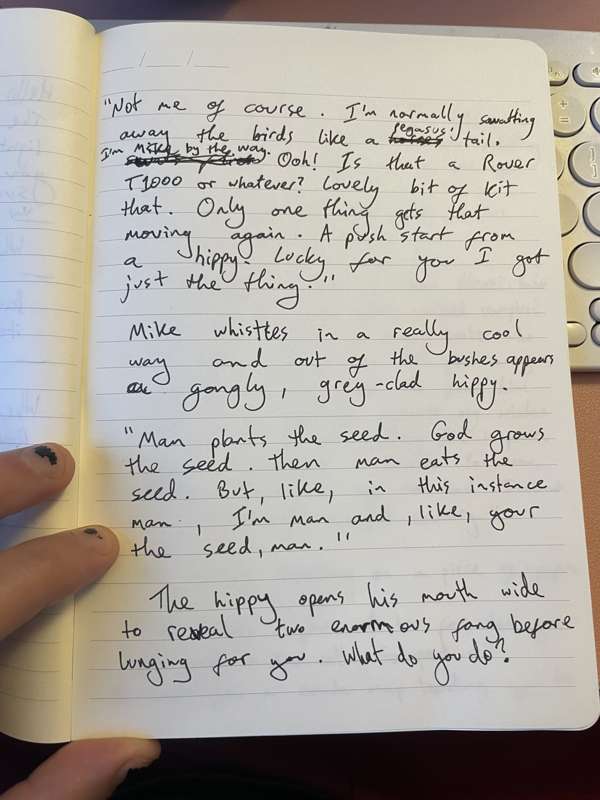 "Not me of course. I'm normally swatting
away the birds like a pegasus' tail.
I'm Mike by the way. Ooh! Is that a Rover
T1000 or whatever? Lovely bit of kit
that. Only one thing gets that
moving again. A push start from
a hippy. Lucky for you I got
just the thing."
Mike whistles in a really cool
way and out of the bushes appears
a gongly, grey-clad hippy.
"Man plants the seed. God grows
the seed. Then man eats the
seed. But, like, in this instance
man, I'm man and, like, your
the seed, man."
The hippy opens his mouth wide
to reveal two enormous fang before
lunging for you. What do you do?